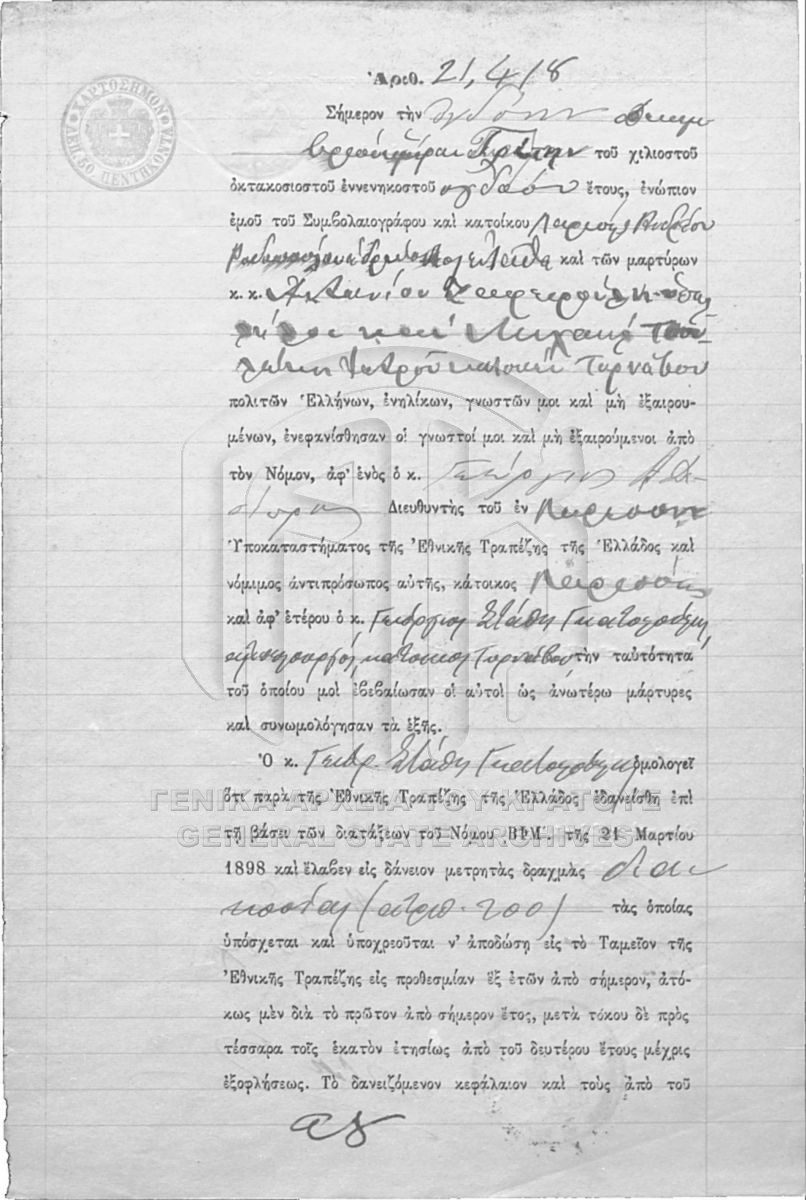 ΧΑΡΤΟΣΗΜΟΝ
ΛΕΠ. 50 ΠΕΝΤΗΚΟΝΤΑ
Ἀριθ. 21,418
Σήμερον τὴν ὀγδόην Δεκεμ
βρίου ἡμέραν Τρίτην τοῦ χιλιοστοῦ
ὀκτακοσιοστοῦ ἐννενηκοστοῦ ὀγδόου ἔτους, ἐνώπιον
ἐμοῦ τοῦ Συμβολαιογράφου καὶ κατοίκου Λαρίσης
καὶ τῶν μαρτύρων
κ. κ. Ἀντωνίου
καὶ
ἰατροῦ κατοίκων Τυρνάβου
πολιτῶν Ἑλλήνων, ἐνηλίκων, γνωστῶν μοι καὶ μὴ ἐξαιρου-
μένων, ἐνεφανίσθησαν οἱ γνωστοί μοι καὶ μὴ ἐξαιρούμενοι ἀπὸ
τὸν Νόμον, ἀφ' ἑνὸς ὁ κ. Γεώργιος
Διευθυντὴς τοῦ ἐν Λαρίσσῃ
Ὑποκαταστήματος τῆς Ἐθνικῆς Τραπέζης τῆς Ἑλλάδος καὶ
νόμιμος ἀντιπρόσωπος αὐτῆς, κάτοικος Λαρίσσης
καὶ ἀφ' ἑτέρου ὁ κ. Γεώργιος Στάθη
κάτοικος Τυρνάβου τὴν ταὐτότητα
τοῦ ὁποίου μοὶ ἐβεβαίωσαν οἱ αὐτοὶ ὡς ἀνωτέρω μάρτυρες
καὶ συνωμολόγησαν τὰ ἑξῆς.
Ὁ κ. Γεώρ. Στάθη ὁμολογεῖ
ὅτι παρὰ τῆς Ἐθνικῆς Τραπέζης τῆς Ἑλλάδος ἐδανείσθη ἐπὶ
ΓΕΝΙΚΑ ΑΡΧΕΙΑ ΤΟΥ ΚΡΑΤΟΥΣ
GENERAL STATE ARCHIVES
τῇ βάσει τῶν διατάξεων τοῦ Νόμου ΒΦΜ΄. τῆς 21 Μαρτίου
1898 καὶ ἔλαβεν εἰς δάνειον μετρητὰς δραχμὰς δια
κοσίας (ἀριθ. 200) τὰς ὁποίας
ὑπόσχεται καὶ ὑποχρεοῦται ν' ἀποδώσῃ εἰς τὸ Ταμεῖον τῆς
Ἐθνικῆς Τραπέζης εἰς προθεσμίαν ἓξ ἐτῶν ἀπὸ σήμερον, ἀτό-
κως μὲν διὰ τὸ πρῶτον ἀπὸ σήμερον ἔτος, μετὰ τόκου δὲ πρὸς
τέσσαρα τοῖς ἑκατὸν ἐτησίως ἀπὸ τοῦ δευτέρου ἔτους μέχρις
ἐξοφλήσεως. Τὸ δανειζόμενον κεφάλαιον καὶ τοὺς ἀπὸ τοῦ